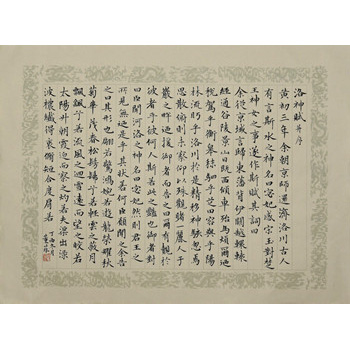 洛神賦 并序
黃初三年余朝京師還濟洛川古人
有言斯水之神名曰宓妃感宋玉對楚
王神女之事遂作斯賦其詞曰
余從京域言歸東藩背伊闕越轘轅
經通谷陵景山日既西傾車殆馬煩爾迺
稅駕乎蘅皋秣駟乎芝田容與乎陽
林流眄乎洛川於是精移神駭忽焉
思散俯則未察仰以殊觀睹一麗人于
巖之畔迺援御者而告之曰爾有覿於
彼者乎彼何人斯若此之艷也御者對
曰臣聞河洛之神名曰宓妃然則君王之
所見無迺是乎其狀若何臣願聞之余告
之曰其形也翩若驚鴻婉若遊龍榮曜秋
菊華茂春松髣髴兮若輕雲之蔽月
飄颻兮若流風之迴雪遠而望之皎若
太陽升朝霞迫而察之灼若芙蕖出淥
波襛纖得衷脩短合度肩若